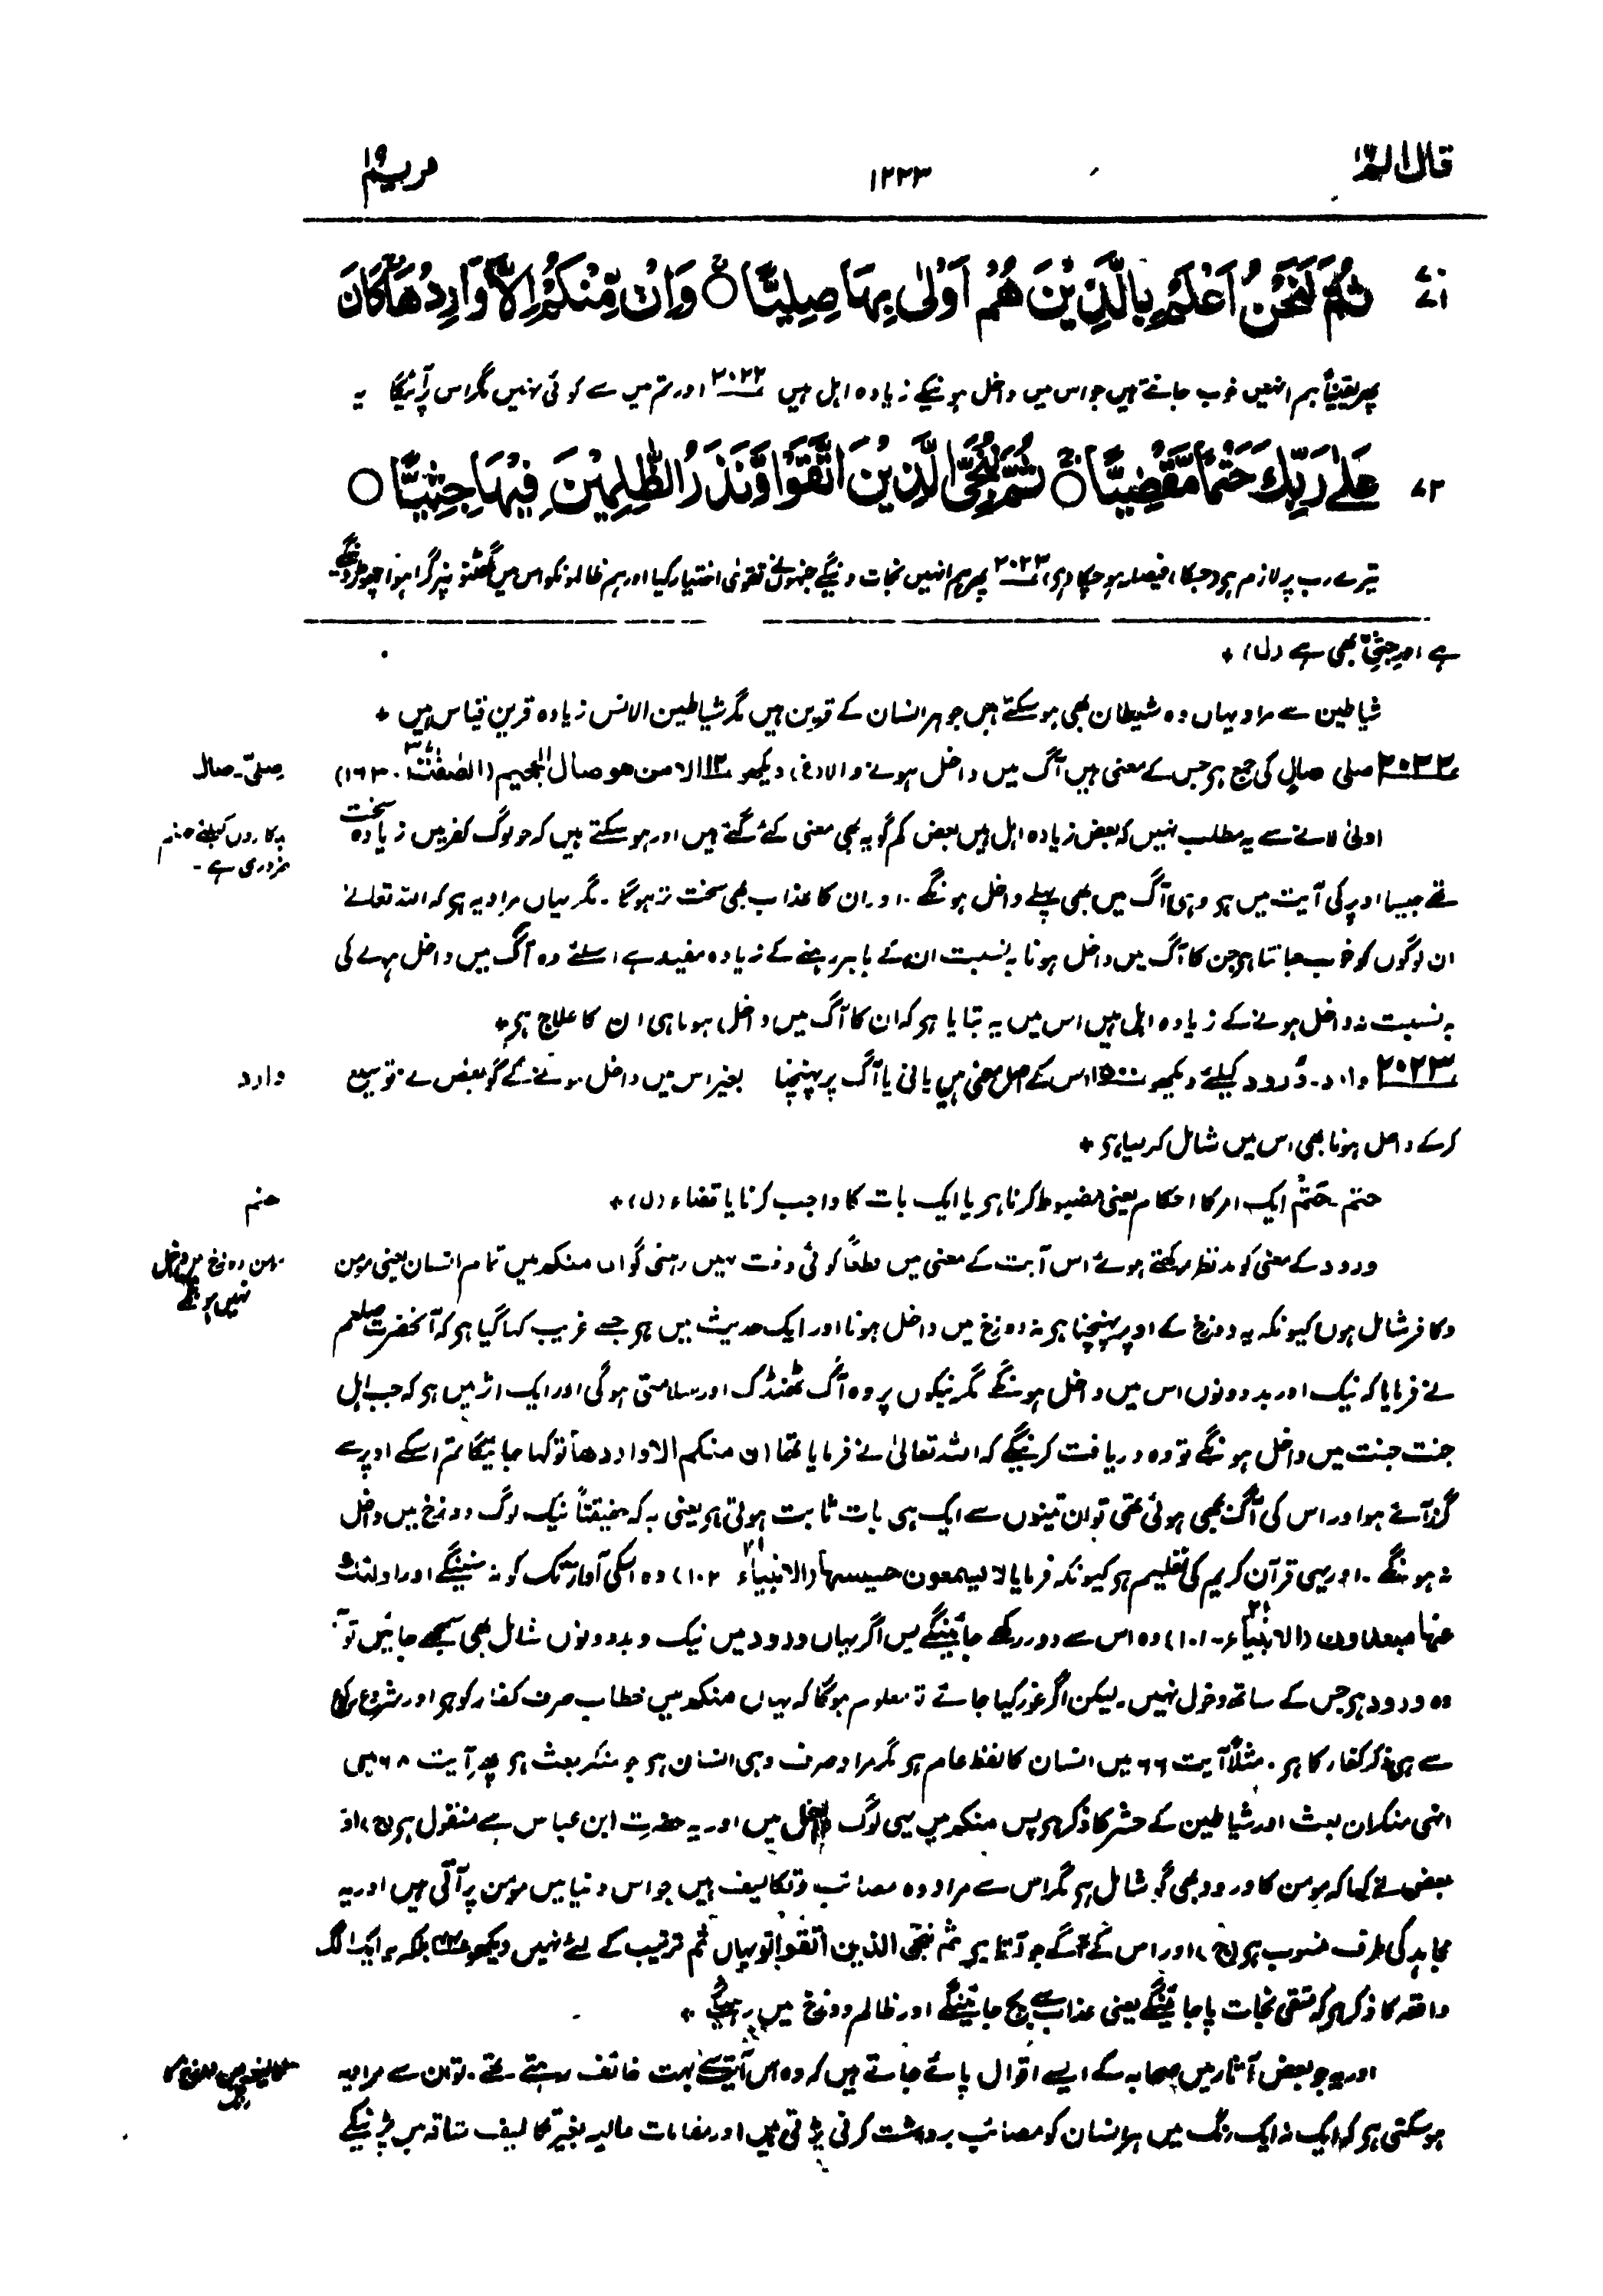 قال الم ١٦
١٢٢٣
مریم ١٩
٧٠ ٧١ ثُمَّ لَنَحْنُ اَعْلَمُ بِالَّذِيْنَ هُمْ اَوْلٰى بِهَا صِلِيًّا ○ وَاِنْ مِّنْكُمْ اِلَّا وَارِدُهَا كَانَ
پھر یقیناً ہم انھیں خوب جانتے ہیں جو اس میں داخل ہونیکے زیادہ اہل ہیں ۲۰۲۲ اور تم میں سے کوئی نہیں مگر اس پر آئیگا یہ
٧٢ عَلٰى رَبِّكَ حَتْمًا مَّقْضِيًّا ○ ثُمَّ نُنَجِّى الَّذِيْنَ اتَّقَوْا وَّنَذَرُ الظّٰلِمِيْنَ فِيْهَا جِثِيًّا ○
تیرے رب پر لازم ہو (جسکا) فیصلہ ہو چکا (ہی) ۲۰۲۳ پھر ہم انہیں نجات دینگے جنہوں نے تقویٰ اختیار کیا اور ہم ظالمونکو اس میں گھٹنو نپر گرا ہوا چھوڑ دینگے۔
ہے اور جِثِیّ بھی ہے (ل) +
شیاطین سے مراد یہاں وہ شیطان بھی ہو سکتے ہیں جو ہر انسان کے قرین ہیں مگر شیاطین الانس زیادہ قرین قیاس ہیں +
۲۰۲۲ صلی صالٍ کی جمع ہو جس کے معنی ہیں آگ میں داخل ہونے والا (غ) دیکھو الا من هو صال الجحیم (الصّٰفّٰت ۳۷۔ ۱۶۳)
صلیّ۔ صال
اولیٰ لانے سے یہ مطلب نہیں کہ بعض زیادہ اہل ہیں بعض کم گو یہ بھی معنی کئے گئے ہیں اور ہو سکتے ہیں کہ جو لوگ کفر میں زیادہ سخت
بدکاروں کیلئے جہنم ضروری ہے۔
تھے جیسا اوپر کی آیت میں ہو وہی آگ میں بھی پہلے داخل ہونگے۔ اور ان کا عذاب بھی سخت تر ہوگا۔ مگر یہاں مراد یہ ہو کہ اللہ تعالےٰ
ان لوگوں کو خوب جانتا ہو جن کا آگ میں داخل ہونا بہ نسبت ان کے باہر رہنے کے زیادہ مفید ہے اسلئے وہ آگ میں داخل ہونے کی
بہ نسبت نہ داخل ہونے کے زیادہ اہل ہیں اس میں یہ بتایا ہو کہ ان کا آگ میں داخل ہونا ہی ان کا علاج ہو +
۲۰۲۳ وارد۔ وُرود کیلئے دیکھو ۱۵۰۰ اس کے اصل معنی ہیں پانی یا آگ پر پہنچنا بغیر اس میں داخل ہونے کے گو بعض نے توسیع
وارد
کرکے داخل ہونا بھی اس میں شامل کر لیا ہو +
حتم۔ حَتْم ایک امر کا احکام یعنی مضبوط کرنا ہو یا ایک بات کا واجب کرنا یا قضاء (ل) +
حتم
ورود کے معنی کو مد نظر رکھتے ہوئے اس آیت کے معنی میں قطعاً کوئی دقت نہیں رہتی گو ان منکم میں تمام انسان یعنی مومن
مومن دوزخ میں داخل نہیں ہونگے
و کافر شامل ہوں کیونکہ یہ دوزخ کے اوپر پہنچنا ہو نہ دوزخ میں داخل ہونا اور ایک حدیث میں ہو جسے غریب کہا گیا ہو کہ آنحضرت صلعم
نے فرمایا کہ نیک اور بد دونوں اس میں داخل ہونگے مگر نیکوں پر وہ آگ ٹھنڈک اور سلامتی ہوگی اور ایک اثر میں ہو کہ جب اہل
جنت جنت میں داخل ہونگے تو وہ دریافت کرینگے کہ اللہ تعالیٰ نے فرمایا تھا ان منکم الا واردھا تو کہا جائیگا تم اسکے اوپر سے
گذر آئے ہو اور اس کی آگ بجھی ہوئی تھی تو ان تینوں سے ایک ہی بات ثابت ہوتی ہو یعنی یہ کہ حقیقتاً نیک لوگ دوزخ میں داخل
نہ ہونگے۔ اور یہی قرآن کریم کی تعلیم ہو کیونکہ فرمایا لا یسمعون حسیسها (الانبیاء ۲۱۔ ۱۰۲) وہ اسکی آواز تک کو نہ سنینگے اور اولٰئک
عنها مبعدون (الانبیاء ۲۱۔ ۱۰۱) وہ اس سے دور رکھے جائینگے پس اگر یہاں ورود میں نیک و بد دونوں شامل بھی سمجھے جائیں تو
وہ ورود ہو جس کے ساتھ دخول نہیں۔ لیکن اگر غور کیا جائے تو معلوم ہوگا کہ یہاں منکم میں خطاب صرف کفار کو ہو اور شروع رکوع
سے ہی ذکر کفار کا ہو۔ مثلاً آیت ۶۶ میں انسان کا لفظ عام ہو مگر مراد صرف وہی انسان ہو جو منکر بعث ہو پھر آیت ۶۸ میں
انہی منکران بعث اور شیاطین کے حشر کا ذکر ہو پس منکم میں یہی لوگ داخل ہیں اور یہ حضرت ابن عباس سے منقول ہو (ج) اور
بعض نے کہا کہ مومن کا ورود بھی گو شامل ہو مگر اس سے مراد وہ مصائب و تکالیف ہیں جو اس دنیا میں مومن پر آتی ہیں اور یہ
مجاہد کی طرف منسوب ہو (ج) اور اس کے آگے جو آتا ہو ثم ننجی الذین اتقوا تو یہاں ثم ترتیب کے لئے نہیں دیکھو بلکہ یہ ایک الگ
واقعہ کا ذکر ہو کہ متقی نجات پا جائینگے یعنی عذاب سے بچ جائینگے اور ظالم دوزخ میں رہینگے +
اور یہ جو بعض آثار میں صحابہ کے ایسے اقوال پائے جاتے ہیں کہ وہ اس آیت سے بہت خائف رہتے تھے۔ تو ان سے مراد یہ
ہو سکتی ہو کہ ایک نہ ایک رنگ میں ہر انسان کو مصائب برداشت کرنی پڑتی ہیں اور مقامات عالیہ بغیر تکالیف شاقہ میں پڑنیکے